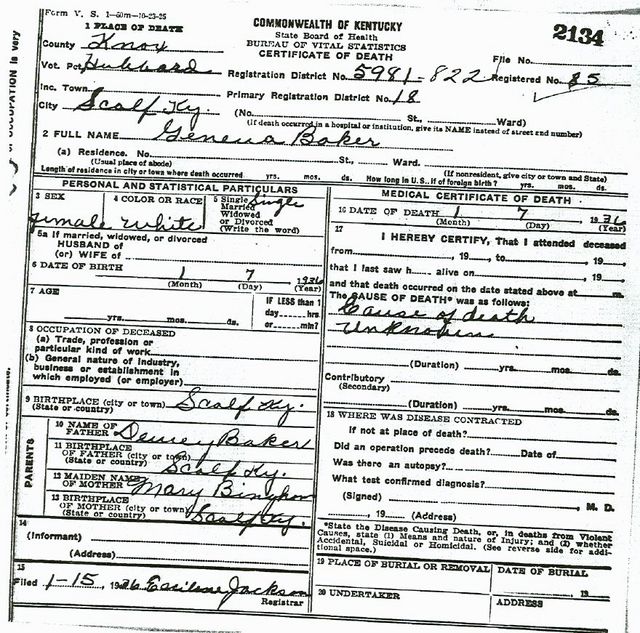 Form V. S. 1-50m-10-23-25
1 PLACE OF DEATH
COMMONWEALTH OF KENTUCKY
State Board of Health
BUREAU OF VITAL STATISTICS
CERTIFICATE OF DEATH
2134
County Knox
File No.
Vot. Pct. Hubbard
Registration District No. 5981-822
Registered No. 85
Inc. Town
Primary Registration District No. 18
City Scalf Ky. (No. St., Ward)
(If death occurred in a hospital or institution, give its NAME instead of street and number)
2 FULL NAME Geneva Baker
(a) Residence. No. St., Ward.
(Usual place of abode) (If nonresident, give city or town and State)
Length of residence in city or town where death occurred yrs. mos. ds. How long in U.S., if of foreign birth? yrs. mos. ds.
PERSONAL AND STATISTICAL PARTICULARS
3 SEX female
4 COLOR OR RACE White
5 Single Married Widowed or Divorced (Write the word) Single
5a If married, widowed, or divorced
HUSBAND of
(or) WIFE of
6 DATE OF BIRTH 1 7 1936
(Month) (Day) (Year)
7 AGE
yrs. mos. ds.
IF LESS than 1
day hrs.
or min?
8 OCCUPATION OF DECEASED
(a) Trade, profession or
particular kind of work
(b) General nature of industry,
business or establishment in
which employed (or employer)
9 BIRTHPLACE (city or town) Scalf Ky.
(State or country)
PARENTS
10 NAME OF
FATHER Dewey Baker
11 BIRTHPLACE
OF FATHER (city or town)
(State or country) Scalf Ky.
12 MAIDEN NAME
OF MOTHER Mary Bingham
13 BIRTHPLACE
OF MOTHER (city or town)
(State or country) Scalf Ky.
14
(Informant)
(Address)
15
Filed 1-15, 1936 Jackson
Registrar
MEDICAL CERTIFICATE OF DEATH
16 DATE OF DEATH 1 7 1936
(Month) (Day) (Year)
17
I HEREBY CERTIFY, That I attended deceased
from , 19 , to , 19
that I last saw h alive on , 19
and that death occurred on the date stated above at m.
The CAUSE OF DEATH* was as follows:
Cause of death
unknown
(Duration) yrs. mos. ds.
Contributory
(Secondary)
(Duration) yrs. mos. ds.
18 WHERE WAS DISEASE CONTRACTED
If not at place of death?
Did an operation precede death? Date of
Was there an autopsy?
What test confirmed diagnosis?
(Signed) M. D.
, 19 (Address)
*State the Disease Causing Death, or, in deaths from Violent
Causes, state (1) Means and nature of Injury; and (2) whether
Accidental, Suicidal or Homicidal. (See reverse side for addi-
tional space.)
19 PLACE OF BURIAL OR REMOVAL
DATE OF BURIAL
19
20 UNDERTAKER
ADDRESS
OCCUPATION is very